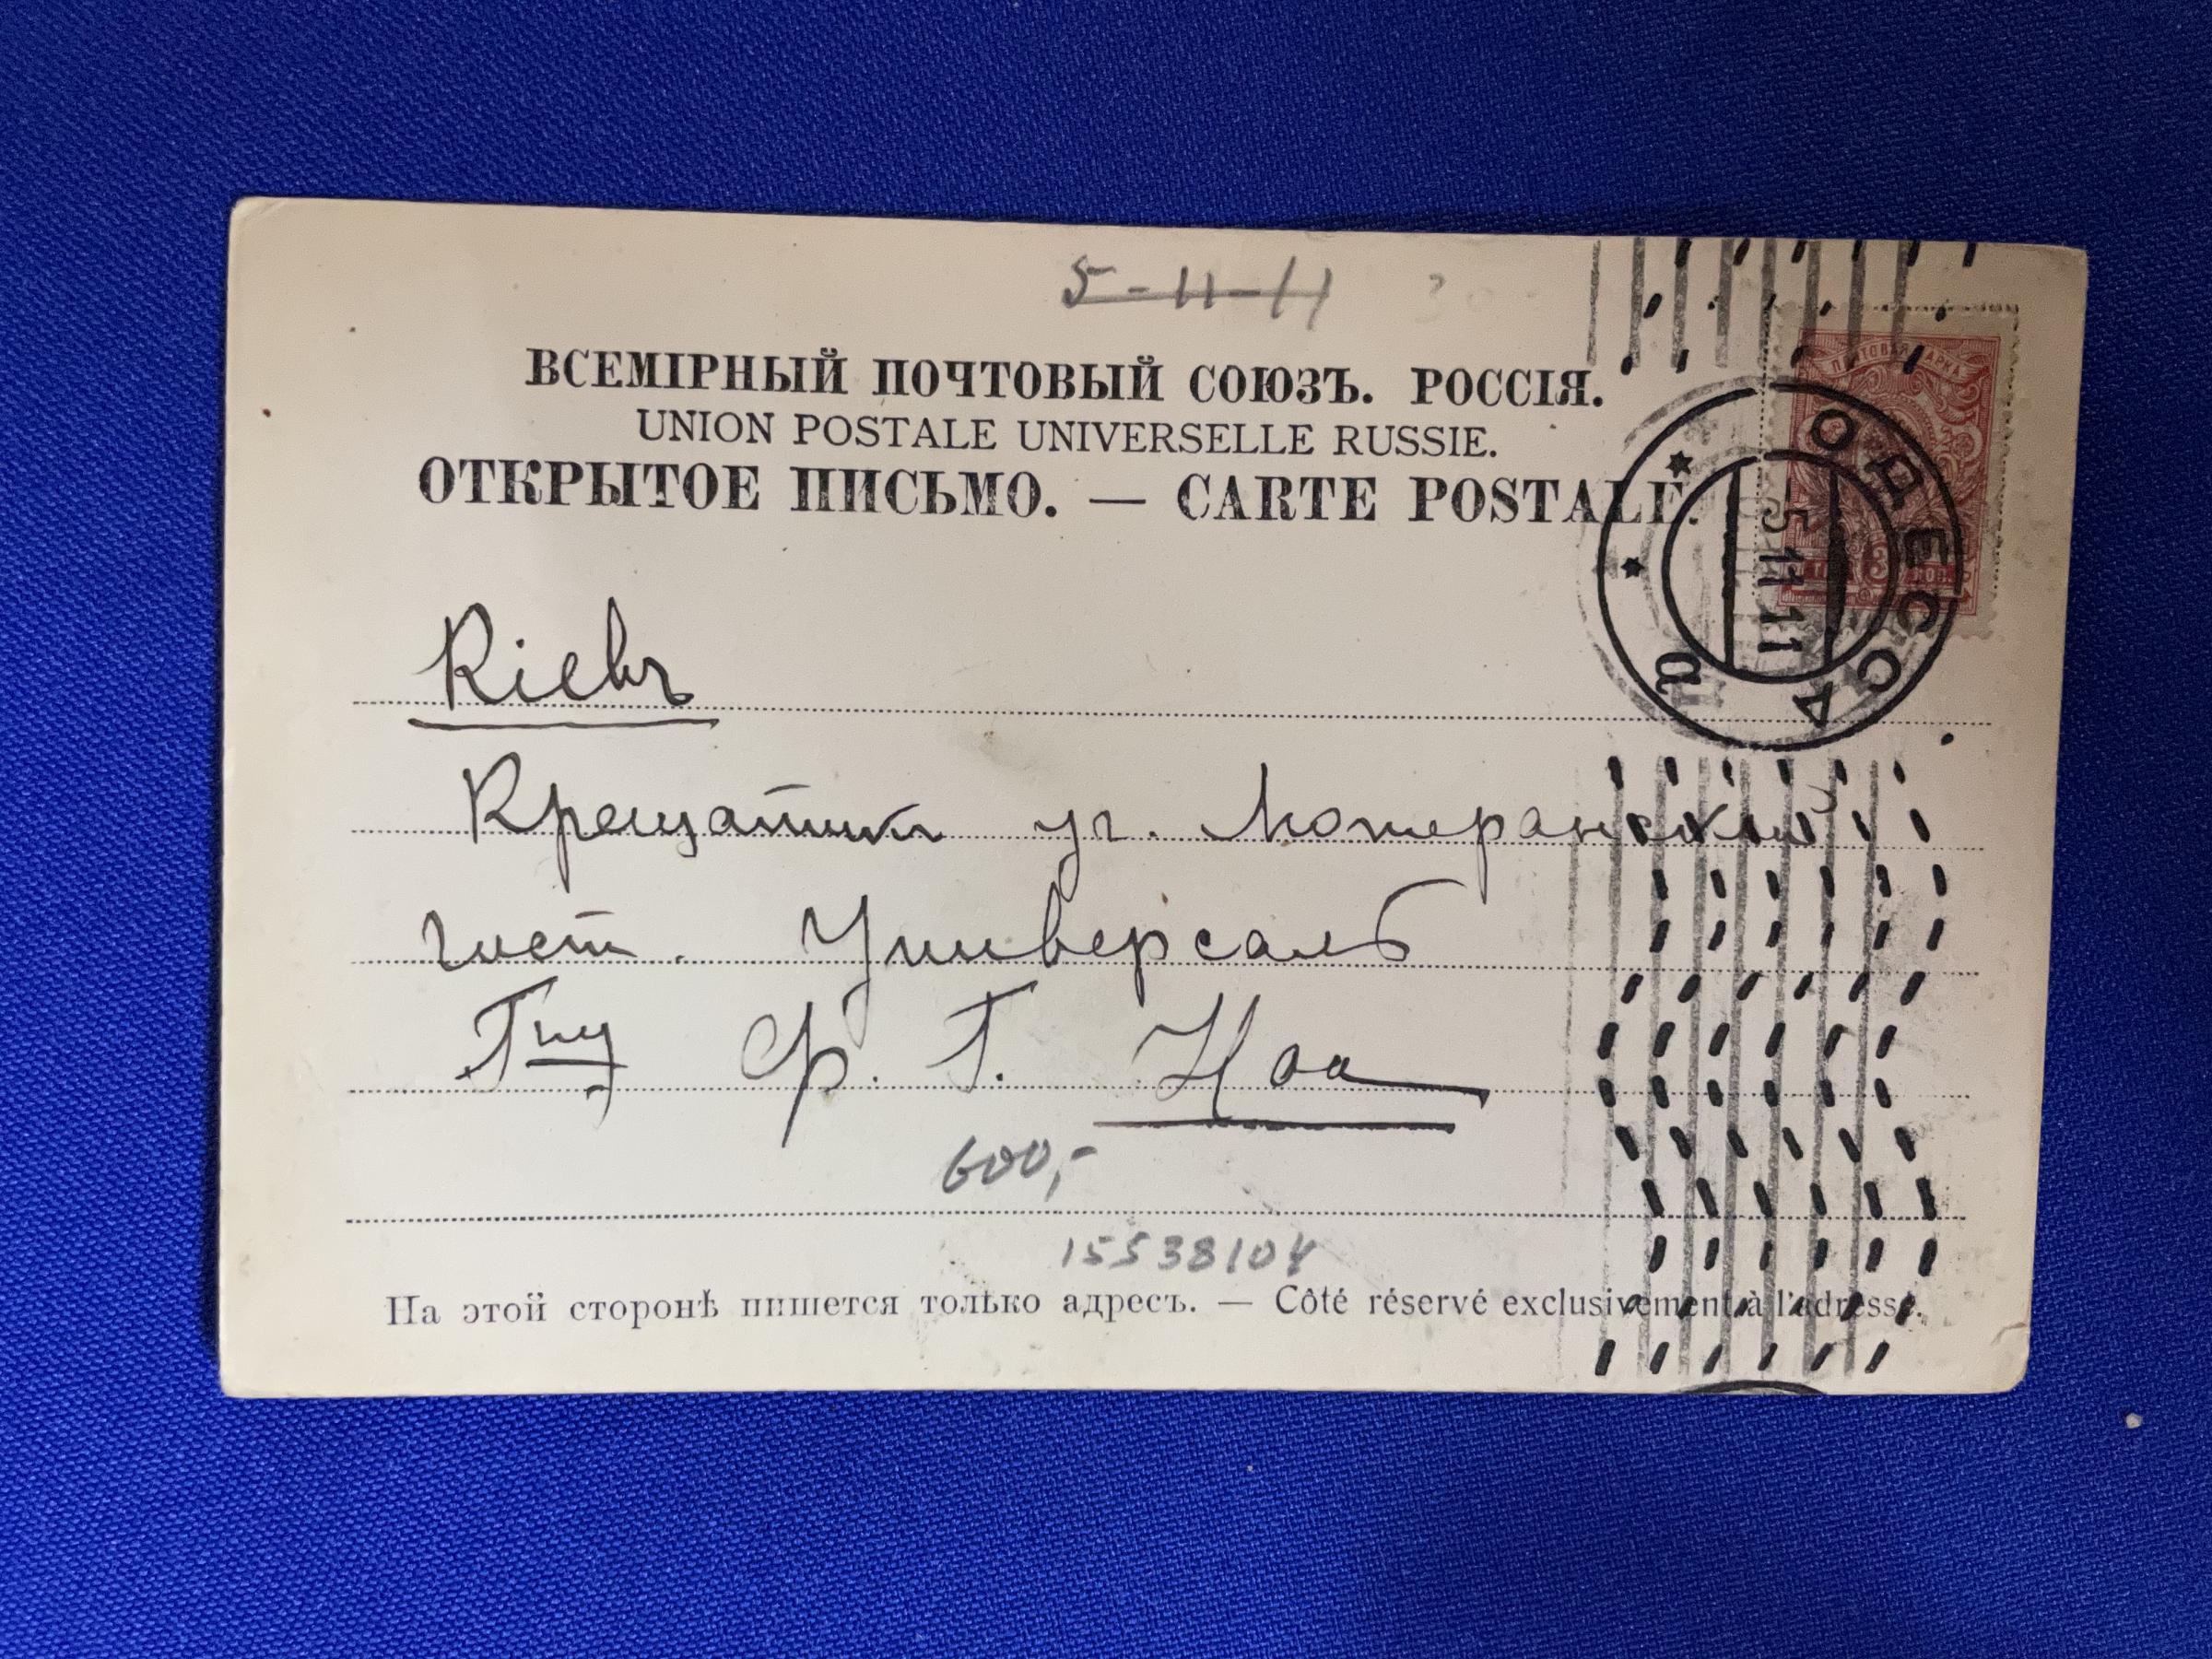 5-11-11
ВСЕМІРНЫЙ ПОЧТОВЫЙ СОЮЗЪ. РОССІЯ.
UNION POSTALE UNIVERSELLE RUSSIE.
ОТКРЫТОЕ ПИСЬМО. — CARTE POSTALE.
ПОЧТОВАЯ МАРКА
3
КОП.
ОДЕССА
5 11 11
Кіевъ
Крещатикъ уг. Лютеранской
гост. Универсалъ
Гну Ф. Г. Ноа
600,-
15538104
На этой сторонѣ пишется только адресъ. — Côté réservé exclusivement à l'adresse.